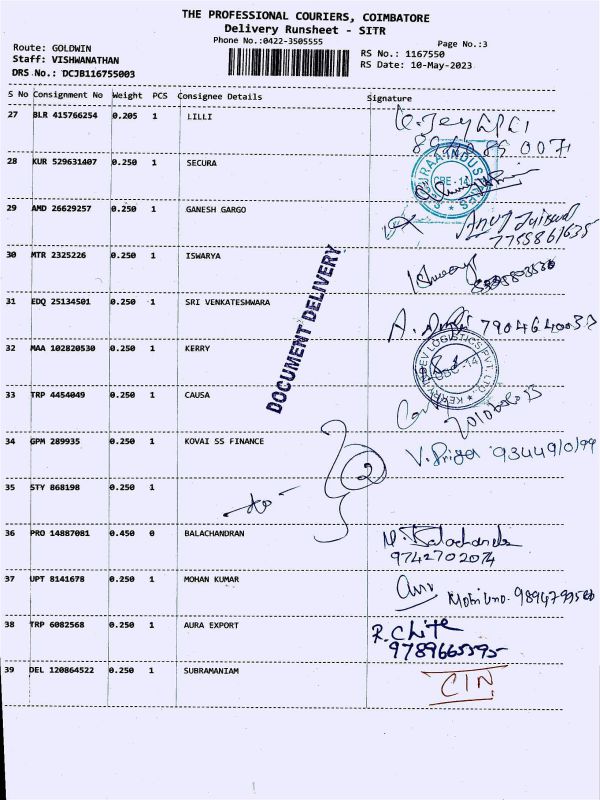 THE PROFESSIONAL COURIERS, COIMBATORE
Delivery Runsheet - SITR
Phone No.:0422-3505555
Page No.:3
Route: GOLDWIN
Staff: VISHWANATHAN
DRS No.: DCJB116755003
RS No.: 1167550
RS Date: 10-May-2023
S No Consignment No Weight PCS Consignee Details Signature
27 BLR 415766254 0.205 1 LILLI
28 KUR 529631407 0.250 1 SECURA
CBE - 14
29 AMD 26629257 0.250 1 GANESH GARGO
7755861635
30 MTR 2325226 0.250 1 ISWARYA
DOCUMENT DELIVERY
31 EDQ 25134501 0.250 1 SRI VENKATESHWARA
7904640033
32 MAA 102820530 0.250 1 KERRY
KERRY INDEV LOGISTICS PVT. LTD.
33 TRP 4454049 0.250 1 CAUSA
34 GPM 289935 0.250 1 KOVAI SS FINANCE
2
35 STY 868198 0.250 1
36 PRO 14887081 0.450 0 BALACHANDRAN
M. Balachander
9742702074
37 UPT 8141678 0.250 1 MOHAN KUMAR
38 TRP 6082568 0.250 1 AURA EXPORT
9789665595
39 DEL 120864522 0.250 1 SUBRAMANIAM
CIN